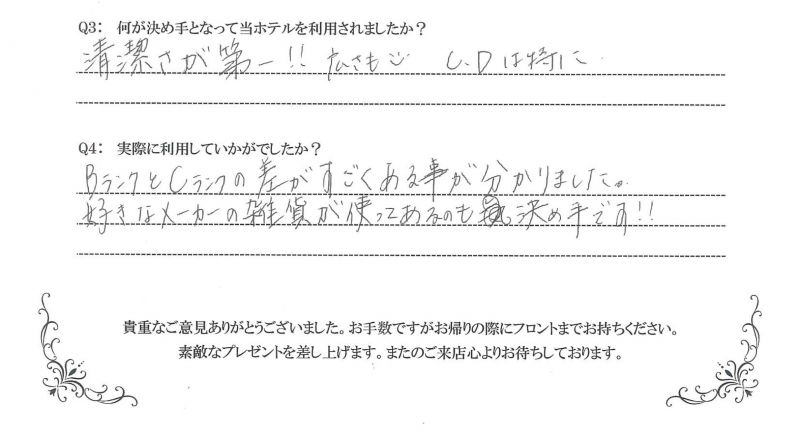 Q3: 何が決め手となって当ホテルを利用されましたか？
清潔さが第一!! 広さも C、Dは特に
Q4: 実際に利用していかがでしたか？
BランクとCランクの差がすごくある事が分かりました。
好きなメーカーの雑貨が使ってあるのも決め手です!!
貴重なご意見ありがとうございました。お手数ですがお帰りの際にフロントまでお持ちください。
素敵なプレゼントを差し上げます。またのご来店心よりお待ちしております。